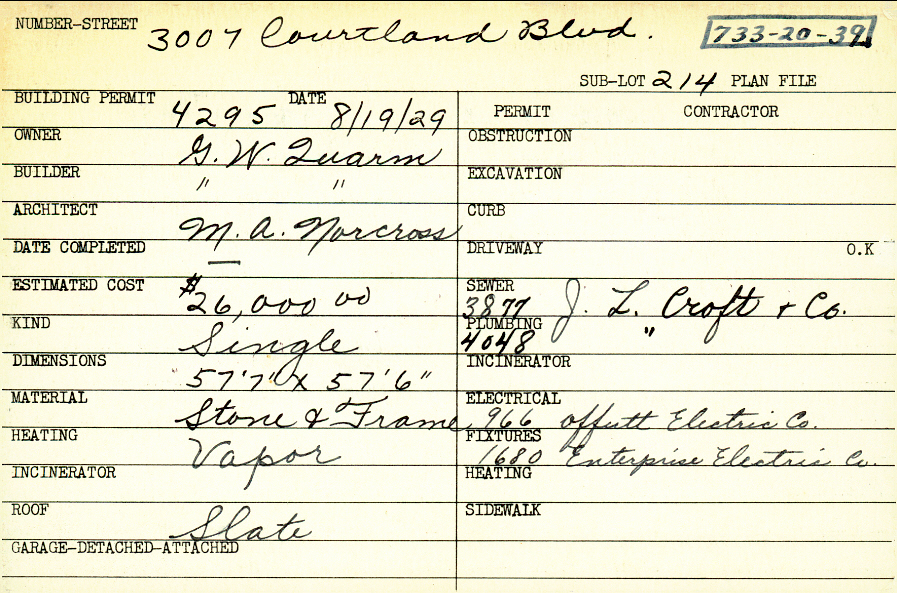 NUMBER-STREET 3007 Courtland Blvd. 733-20-39
SUB-LOT 214 PLAN FILE
BUILDING PERMIT 4295 DATE 8/19/29
PERMIT CONTRACTOR
OWNER G. W. Quarm
OBSTRUCTION
BUILDER " "
EXCAVATION
ARCHITECT M. A. Norcross
CURB
DATE COMPLETED —
DRIVEWAY O.K
ESTIMATED COST $26,000 00
SEWER 3877 J. L. Croft & Co.
KIND Single
PLUMBING 4048 "
DIMENSIONS 57'7" x 57'6"
INCINERATOR
MATERIAL Stone & Frame
ELECTRICAL 966 Offutt Electric Co.
HEATING Vapor
FIXTURES 1680 Enterprise Electric Co.
INCINERATOR
HEATING
ROOF Slate
SIDEWALK
GARAGE-DETACHED-ATTACHED